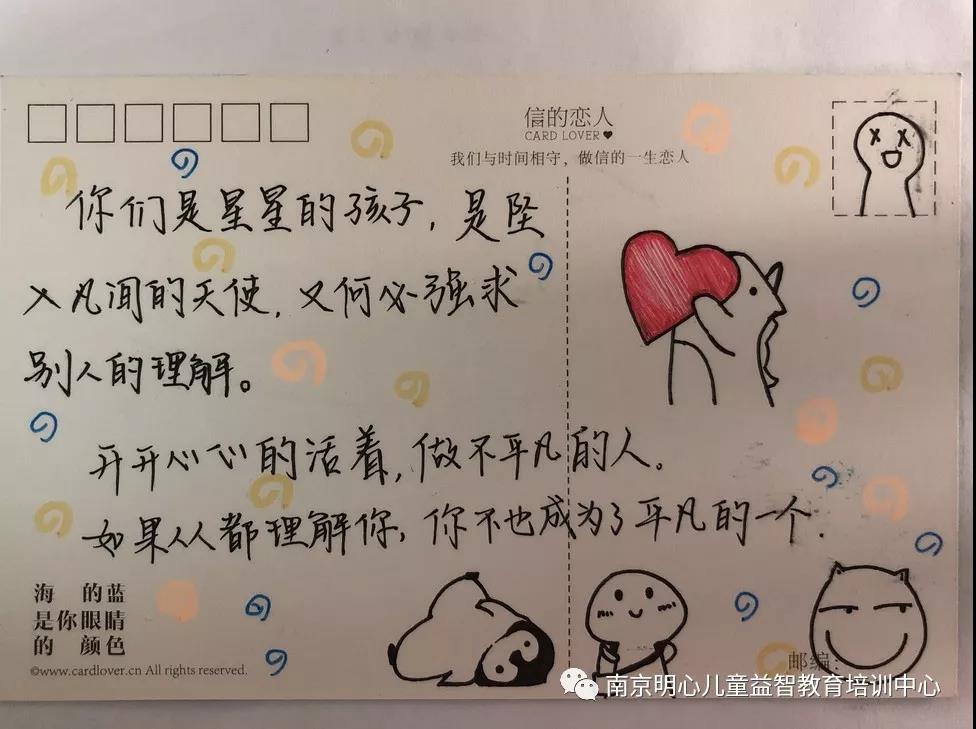 信的恋人
CARD LOVER
我们与时间相守，做信的一生恋人
你们是星星的孩子，是坠
入凡间的天使，又何必强求
别人的理解。
开开心心的活着，做不平凡的人。
如果人人都理解你，你不也成为了平凡的一个.
海 的蓝
是你眼睛
的 颜色
©www.cardlover.cn All rights reserved.
邮编：
南京明心儿童益智教育培训中心